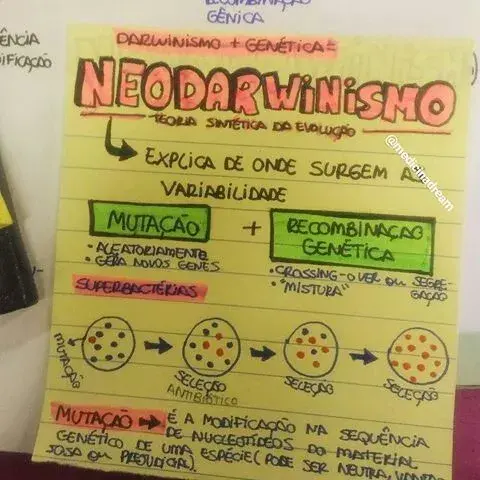 RECOMBINAÇÃO
GÊNICA
ÊNCIA
IFICAÇÃO
DARWINISMO + GENÉTICA =
NEODARWINISMO
TEORIA SINTÉTICA DA EVOLUÇÃO
EXPLICA DE ONDE SURGEM A
VARIABILIDADE
@medicinadream
MUTAÇÃO + RECOMBINAÇAO
GENÉTICA
• ALEATORIAMENTE
• GERA NOVOS GENES
• CROSSING-OVER OU SEGRE-
GAÇÃO
• "MISTURA"
SUPERBACTÉRIAS
MUTAÇÃO
SELEÇÃO
ANTIBIÓTICO
SELEÇÃO
SELEÇÃO
MUTAÇÃO → É A MODIFICAÇÃO NA SEQUÊNCIA
DE NUCLEOTÍDEOS DO MATERIAL
GENÉTICO DE UMA ESPÉCIE (PODE SER NEUTRA, VANTA
JOSA OU PREJUDICIAL).